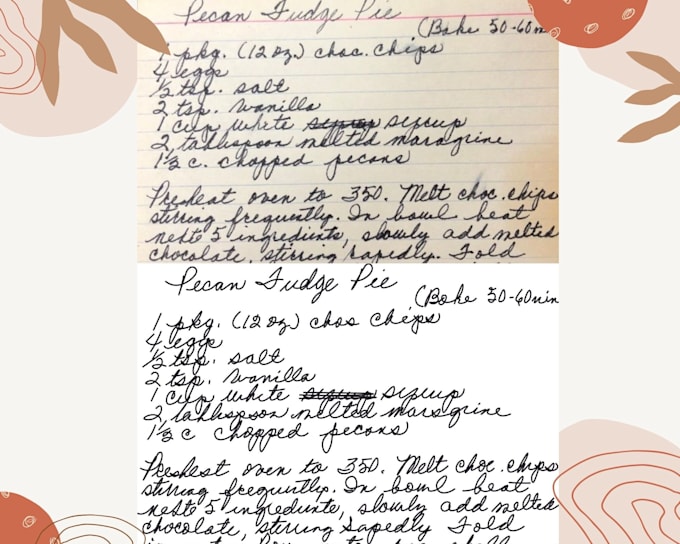 Pecan Fudge Pie
(Bake 50-60m
1 pkg. (12 oz.) choc. chips
4 eggs
½ tsp. salt
2 tsp. vanilla
1 cup white syrcup
2 tablespoon melted maragrine
1½ c. chopped pecans
Preheat oven to 350. Melt choc. chips
stirring frequently. In bowl beat
next 5 ingredients, slowly add melted
chocolate, stirring rapidly. Fold
Pecan Fudge Pie
(Bake 50-60min
1 pkg. (12 oz) choc chips
4 eggs
½ tsp. salt
2 tsp. vanilla
1 cup white syrcup
2 tablespoon melted maragrine
1½ c chopped pecans
Preheat oven to 350. Melt choc. chips
stirring frequently. In bowl beat
next 5 ingredients, slowly add melted
chocolate, stirring rapidly Fold